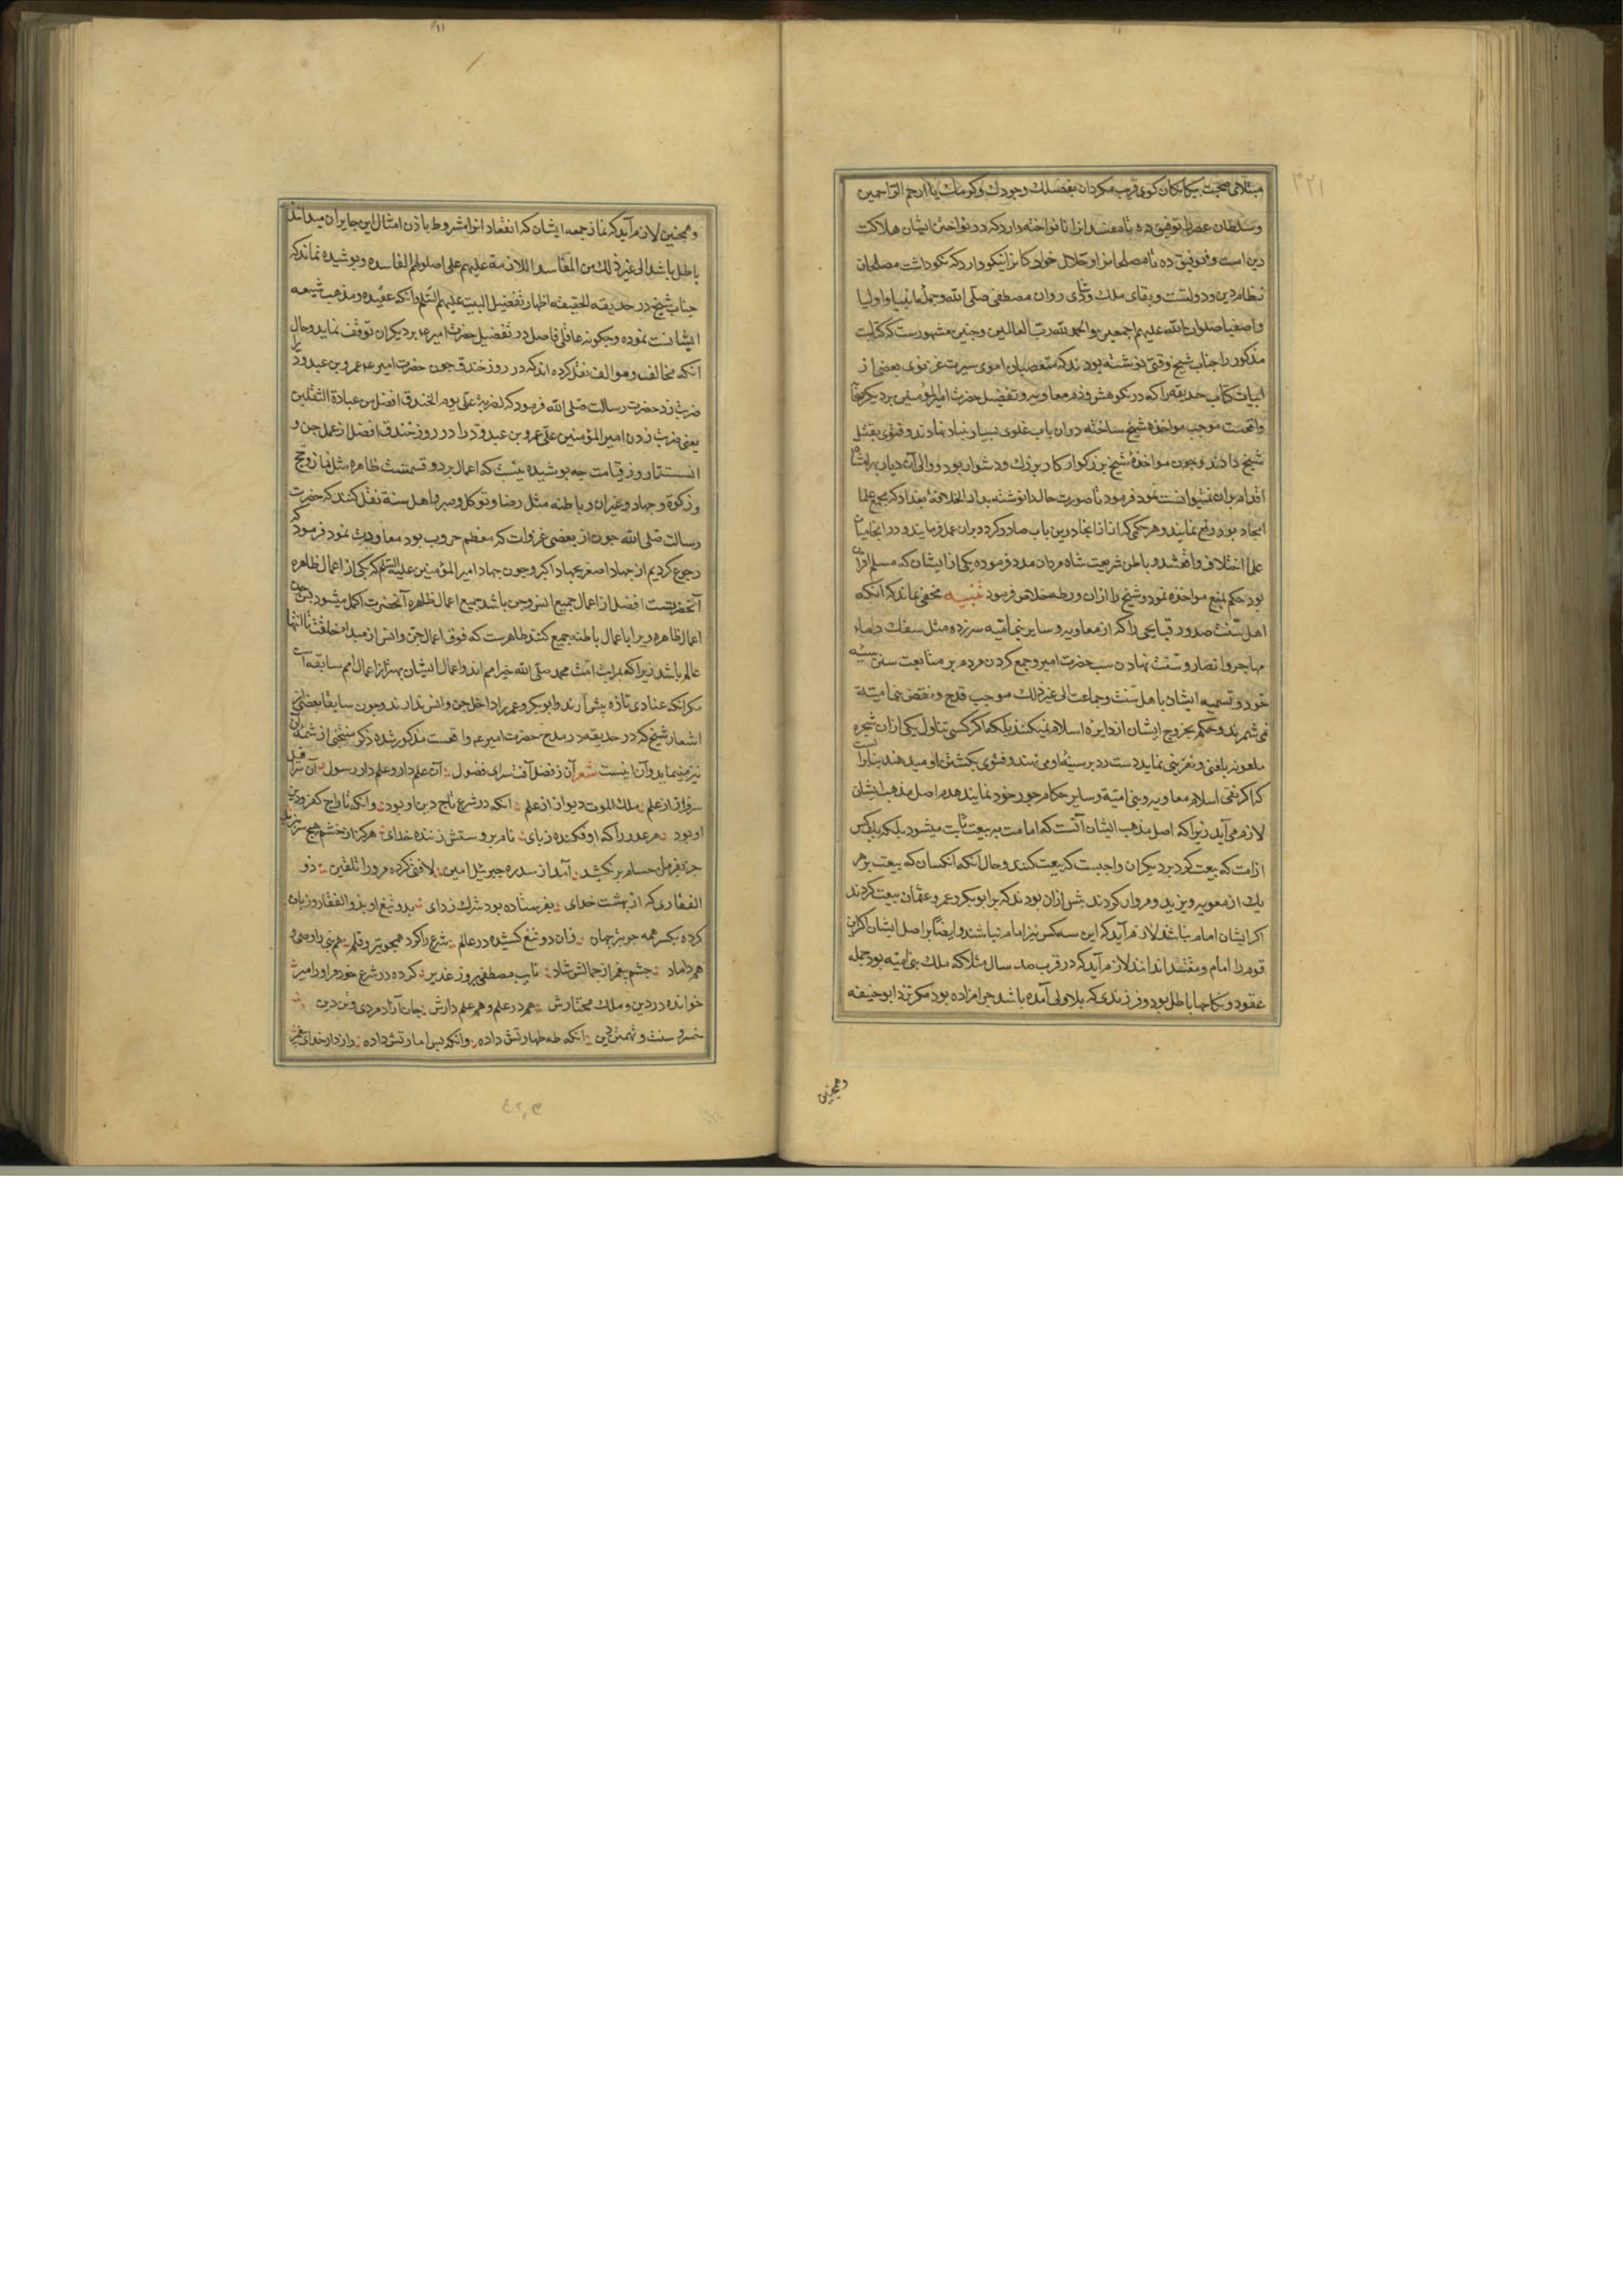 ۳۲۱
مبتلای صحبت بیکانکان کوی قریب مکردان بفضلك وجودك وکرمك یا ارحم الراحمین
وسلطان عصر را توفیق ده تا مفسدانرا نانواخته دارد که در نواختن ایشان هلاکت
دین است و توفیق ده تا مصلحانرا و حلال خوارکانرا نیکو دارد که نکوداشت مصلحان
نظام دین و دولتست و بقای ملك و شادی روان مصطفی صلی الله وجملهٔ انبیا و اولیا
و اصفیا صلوات الله علیهم اجمعین والحمد لله رب العالمین و چنین مشهورست که کتابت
مذکور را جناب شیخ وقتی نوشته بودند که متعصبان اموی سیرت غزنوی بعضی از
ابیات کتاب حدیقه را که در نکوهش و ذم معاویه و تفضیل حضرت امیرالمؤمنین بر دیکر صحابه
واقعست موجب مواخذه شیخ ساخته دران باب غلوی بسیار بنیاد نهادند و فتوی بقتل
شیخ دادند و چون مواخذهٔ شیخ بزرکوار کار بزرك و دشوار بود و والی آن دیار برامشاه
اقدام بران نمیتوانست نمود فرمود تا صورت حال را نوشته بدار الخلافهٔ بغداد که مجمع علما
انجاد بود رفع نمایند و هر حکمی که از انجا درین باب صادر کردد بران عمل فرمایند و در انجا میان
علما اختلاف واقع شد و باطن شریعت شاه مردان مدد فرموده یکی از ایشان که مسلم اقران
بود حکم بمنع مواخذه نمود و شیخ را ازان ورطه خلاص فرمود تنبیه مخفی نماند که آنکه
اهل سنت صدور قبایحی را که از معاویه و سایر بنی امیه سر زده مثل سفك دماء
مهاجر و انصار و سنت نهادن سب حضرت امیر و جمع کردن مردم بر متابعت سنن سیئه
خود و تسمیه ایشان باهل سنت و جماعت الی غیر ذلك موجب قدح و نقص بنی امیه
نمی شمرند و حکم بخروج ایشان از دایره اسلام نمیکنند بلکه اکر کسی تناول یکی ازان شجره
ملعونه بلعنی و نفرینی نماید دست رد بر سینه او می نهند و فتوی بکشتن او میدهند بنابر آنست
که اکر نفی اسلام معاویه و بنی امیه و سایر حکام جور خود نمایند هدم اصل مذهب ایشان
لازم می آید زیرا که اصل مذهب ایشان آنست که امامت به بیعت ثابت میشود بلکه یك کس
از امت که بیعت کرد بر دیکران واجبست که بیعت کنند و حال آنکه آنکسان که بیعت بر هر
یك از معویه و یزید و مروان کردند بیش ازان بودند که بر ابو بکر و عمر و عثمان بیعت کردند
اکر ایشان امام نباشند لازم آید که این سه کس نیز امام نباشند و ایضا بر اصل ایشان اکر آن
قوم را امام و مقتدا ندانند لازم آید که در قرب صد سال مثلا که ملك بنی امیه بود جمله
عقود و نکاحها باطل بود و فرزندی که بلا ولی آمده باشد حرامزاده بود مکر نزد ابو حنیفه
وهمچنین
وهمچنین لازم آید که نماز جمعه ایشان که انعقاد انرا مشروط باذن امثال این جایران میدانند
باطل باشد الی غیر ذلك من المفاسد اللازمة علیهم علی اصولهم الفاسده و پوشیده نماند که
جناب شیخ در حدیقه الحقیقه اظهار تفضیل البیت علیهم السلم و آنکه عقیده و مذهب شیعه
ایشانست نموده و چکونه عاقلی فاضل در تفضیل حضرت امیر ع بر دیکران توقف نماید و حال
آنکه مخالف و موالف نقل کرده اند که در روز خندق چون حضرت امیر ع عمرو بن عبدود را
ضربت زد حضرت رسالت صلی الله فرمود که لضربة علی یوم الخندق افضل من عبادة الثقلین
یعنی ضربت زدن امیر المؤمنین علی عمرو بن عبدود را در روز خندق افضل از عمل جن و
انسست تا روز قیامت چه پوشیده نیست که اعمال بر دو قسمست ظاهره مثل نماز و حج
و زکوة و جهاد و غیران و باطنه مثل رضا و توکل و صبر و اهل سنة نقل کنند که حضرت
رسالت صلی الله چون از بعضی غزوات که معظم حروب بود معاودت نمود فرمود که
رجوع کردیم از جهاد اصغر بجهاد اکبر و چون جهاد امیر المؤمنین علیه السلم که یکی از اعمال ظاهره
آنحضرتست افضل از اعمال جمیع انس و جن باشد جمیع اعمال ظاهره آنحضرت اکمل میشود پس چون
اعمال ظاهره ویرا باعمال باطنه جمیع کنند ظاهرست که فوق اعمال جن و انس از مبداء خلقت تا انتها
عالم باشد زیرا که بمراتب امت محمد صلی الله خیر امم اند و اعمال ایشان بهتر از اعمال امم سابقه است
مکر آنکه عنادی تازه پیش آرند و ابو بکر و عمر را داخل جن و انس ندارند و چون سابقا بعضی از
اشعار شیخ که در حدیقه در مدح حضرت امیر ع واقعست مذکور شده ذکر منتخبی از تتمهٔ آن
نیز مینماید و آن اینست شعر آن ز فضل آفت سرای فضول آن علم دار و علم دار رسول آن سرافیل
سرفراز از علم ملك الموت دیو از از علم آنکه در شرع تاج دین او بود وآنکه تاراج کفر و دین
او بود هر عدو را که او فکنده ز پای نام بر دستش زننده خدای هرکز از خشم هیچ سر نبرید
جز بفرمان حسام بر نکشید آمد از سدره جبرئیل امین لا فتی کرده مرورا تلقین ذو
الفقاری که از بهشت خدای بفرستاده بود شرك زدای بدو تیغ او بذو الفقار و زبان
کرده یکسر همه جو تیر جهان زان دو تیغ کشیده در عالم شرع را کرد همچو تیر و قلم هم نبی را وصی و
هم داماد چشم پیغمبر از جمالش شاد نایب مصطفی بروز غدیر کرده در شرع خود مر اورا میر
خوانده در دین و ملك مختارش هم در علم و هم علم دارش جان آزاد مردی و تن دین
خسرو سنت و تهمتن دین آنکه طه طهارتش داده وآنکه یس امارتش داده رازدار خدای پیغمبر